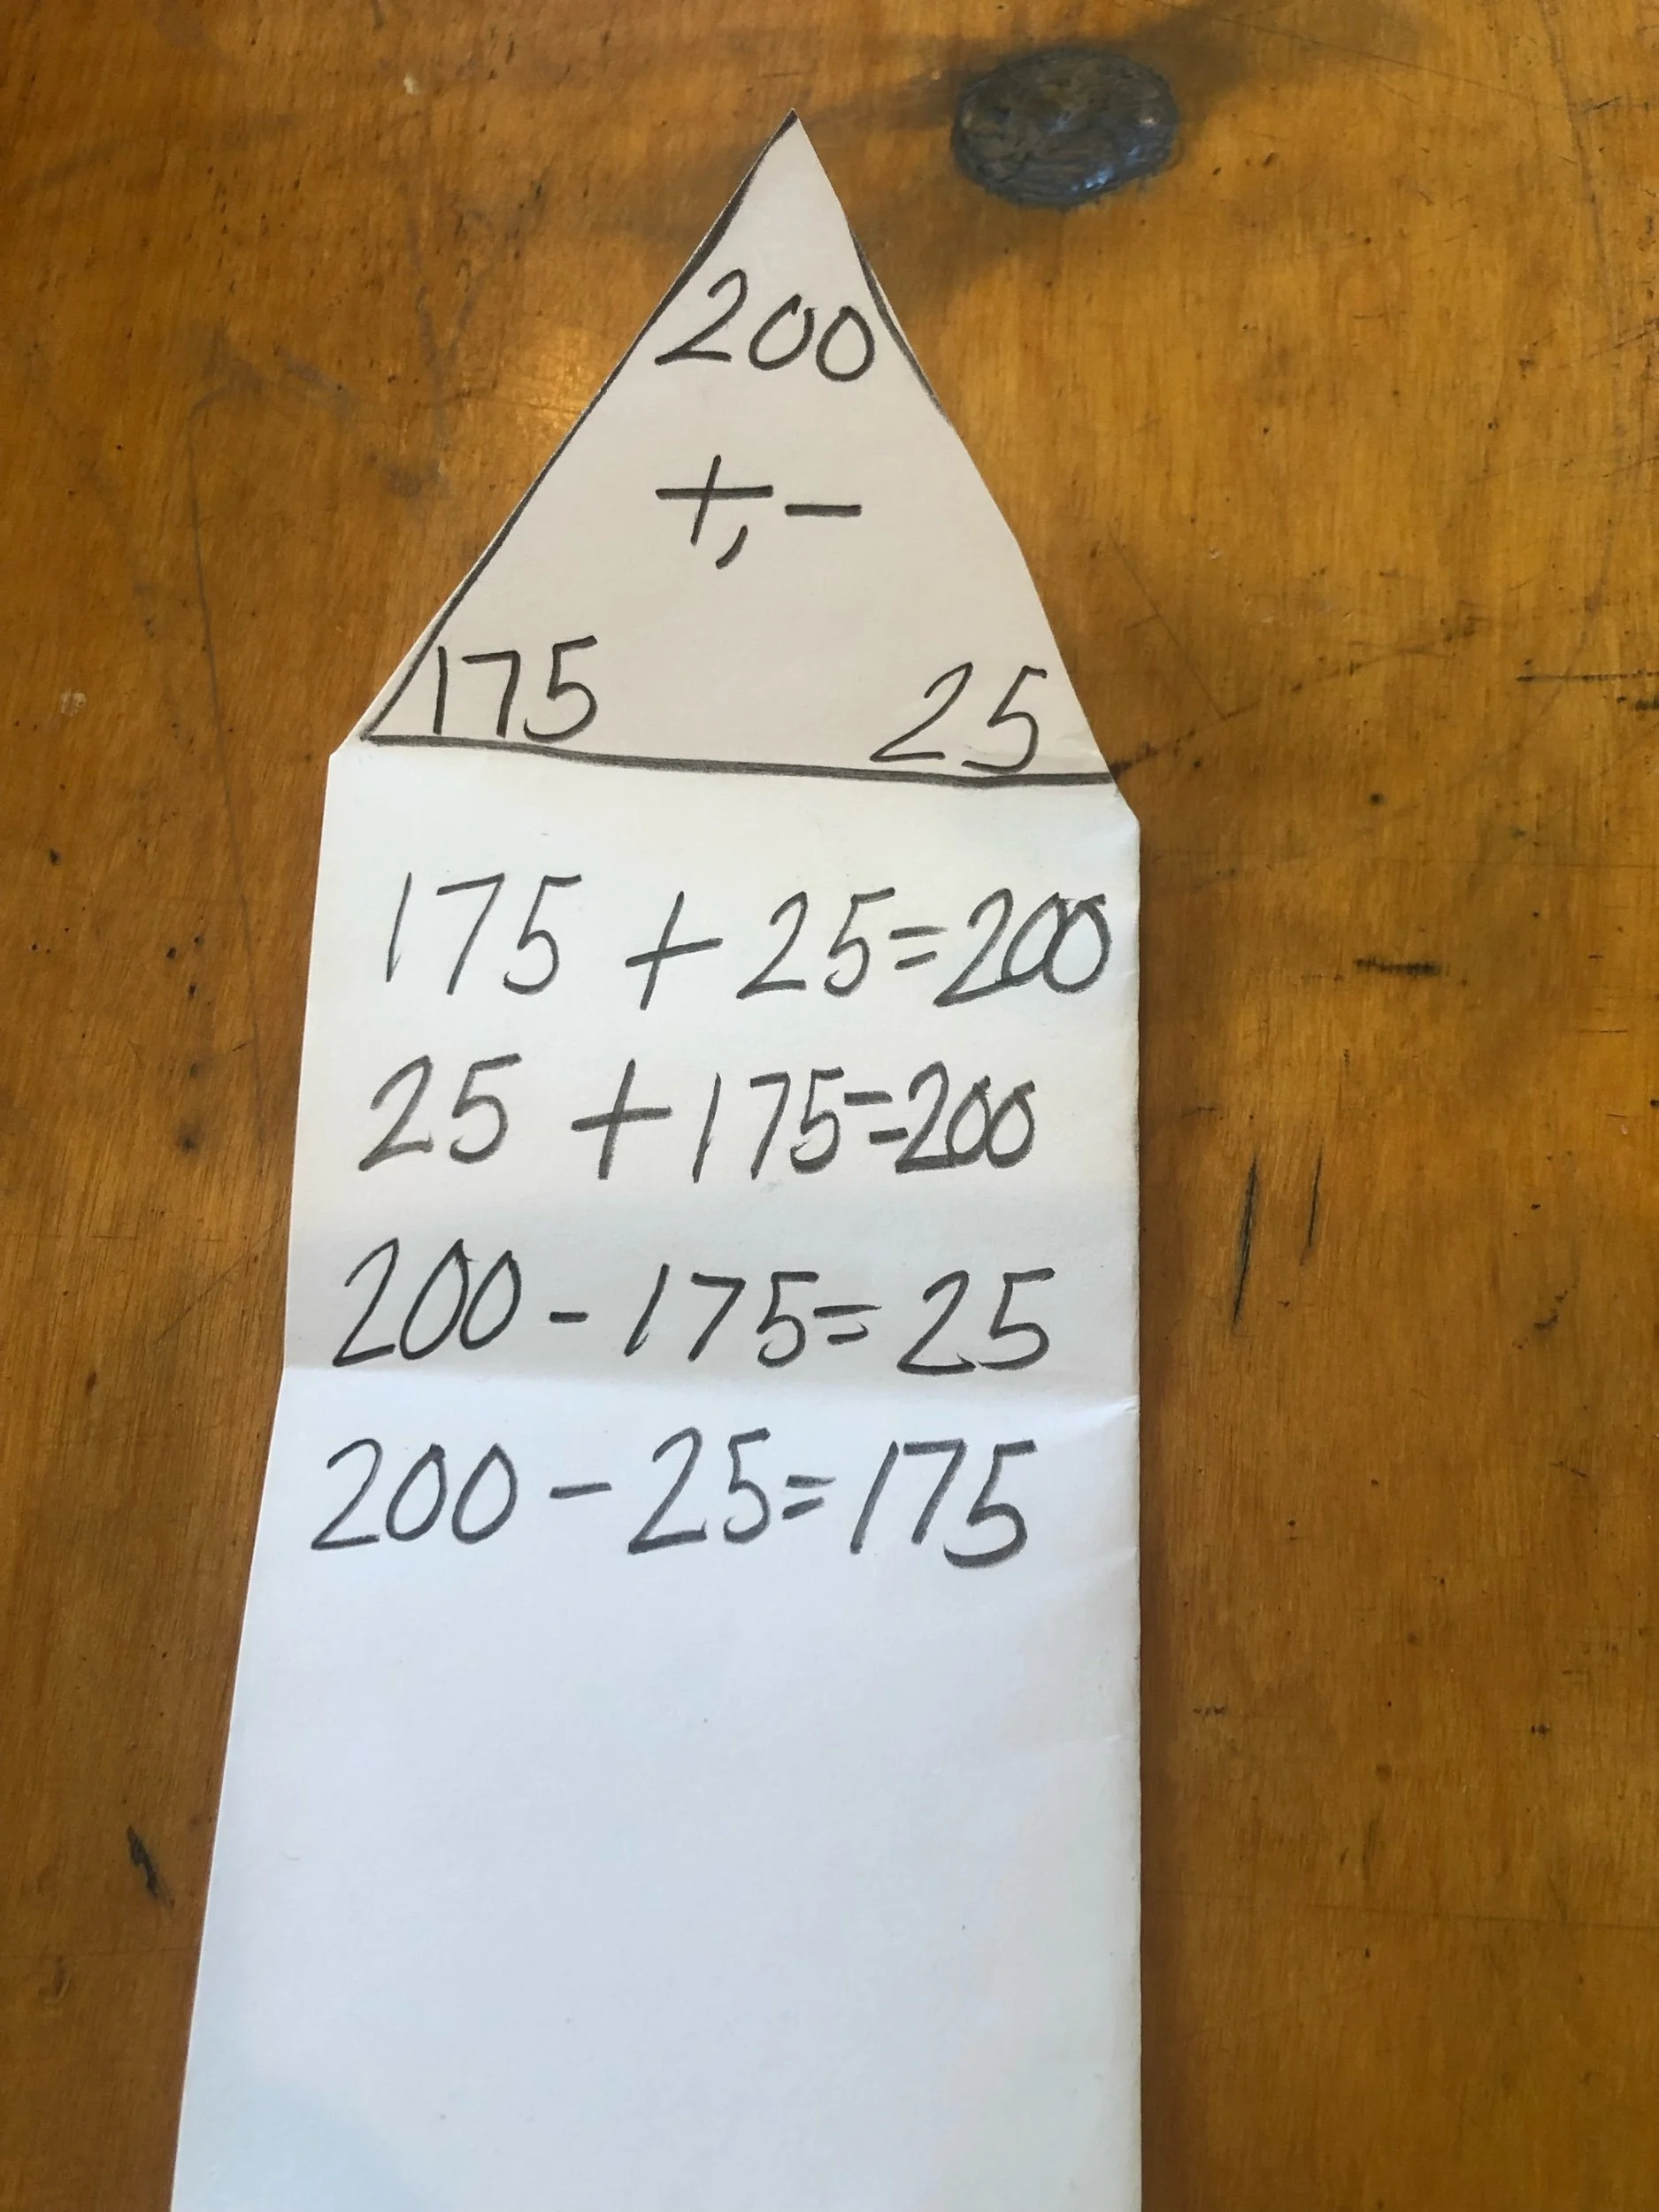 200
+,-
175 25
175 + 25=200
25 + 175=200
200 - 175= 25
200 - 25= 175